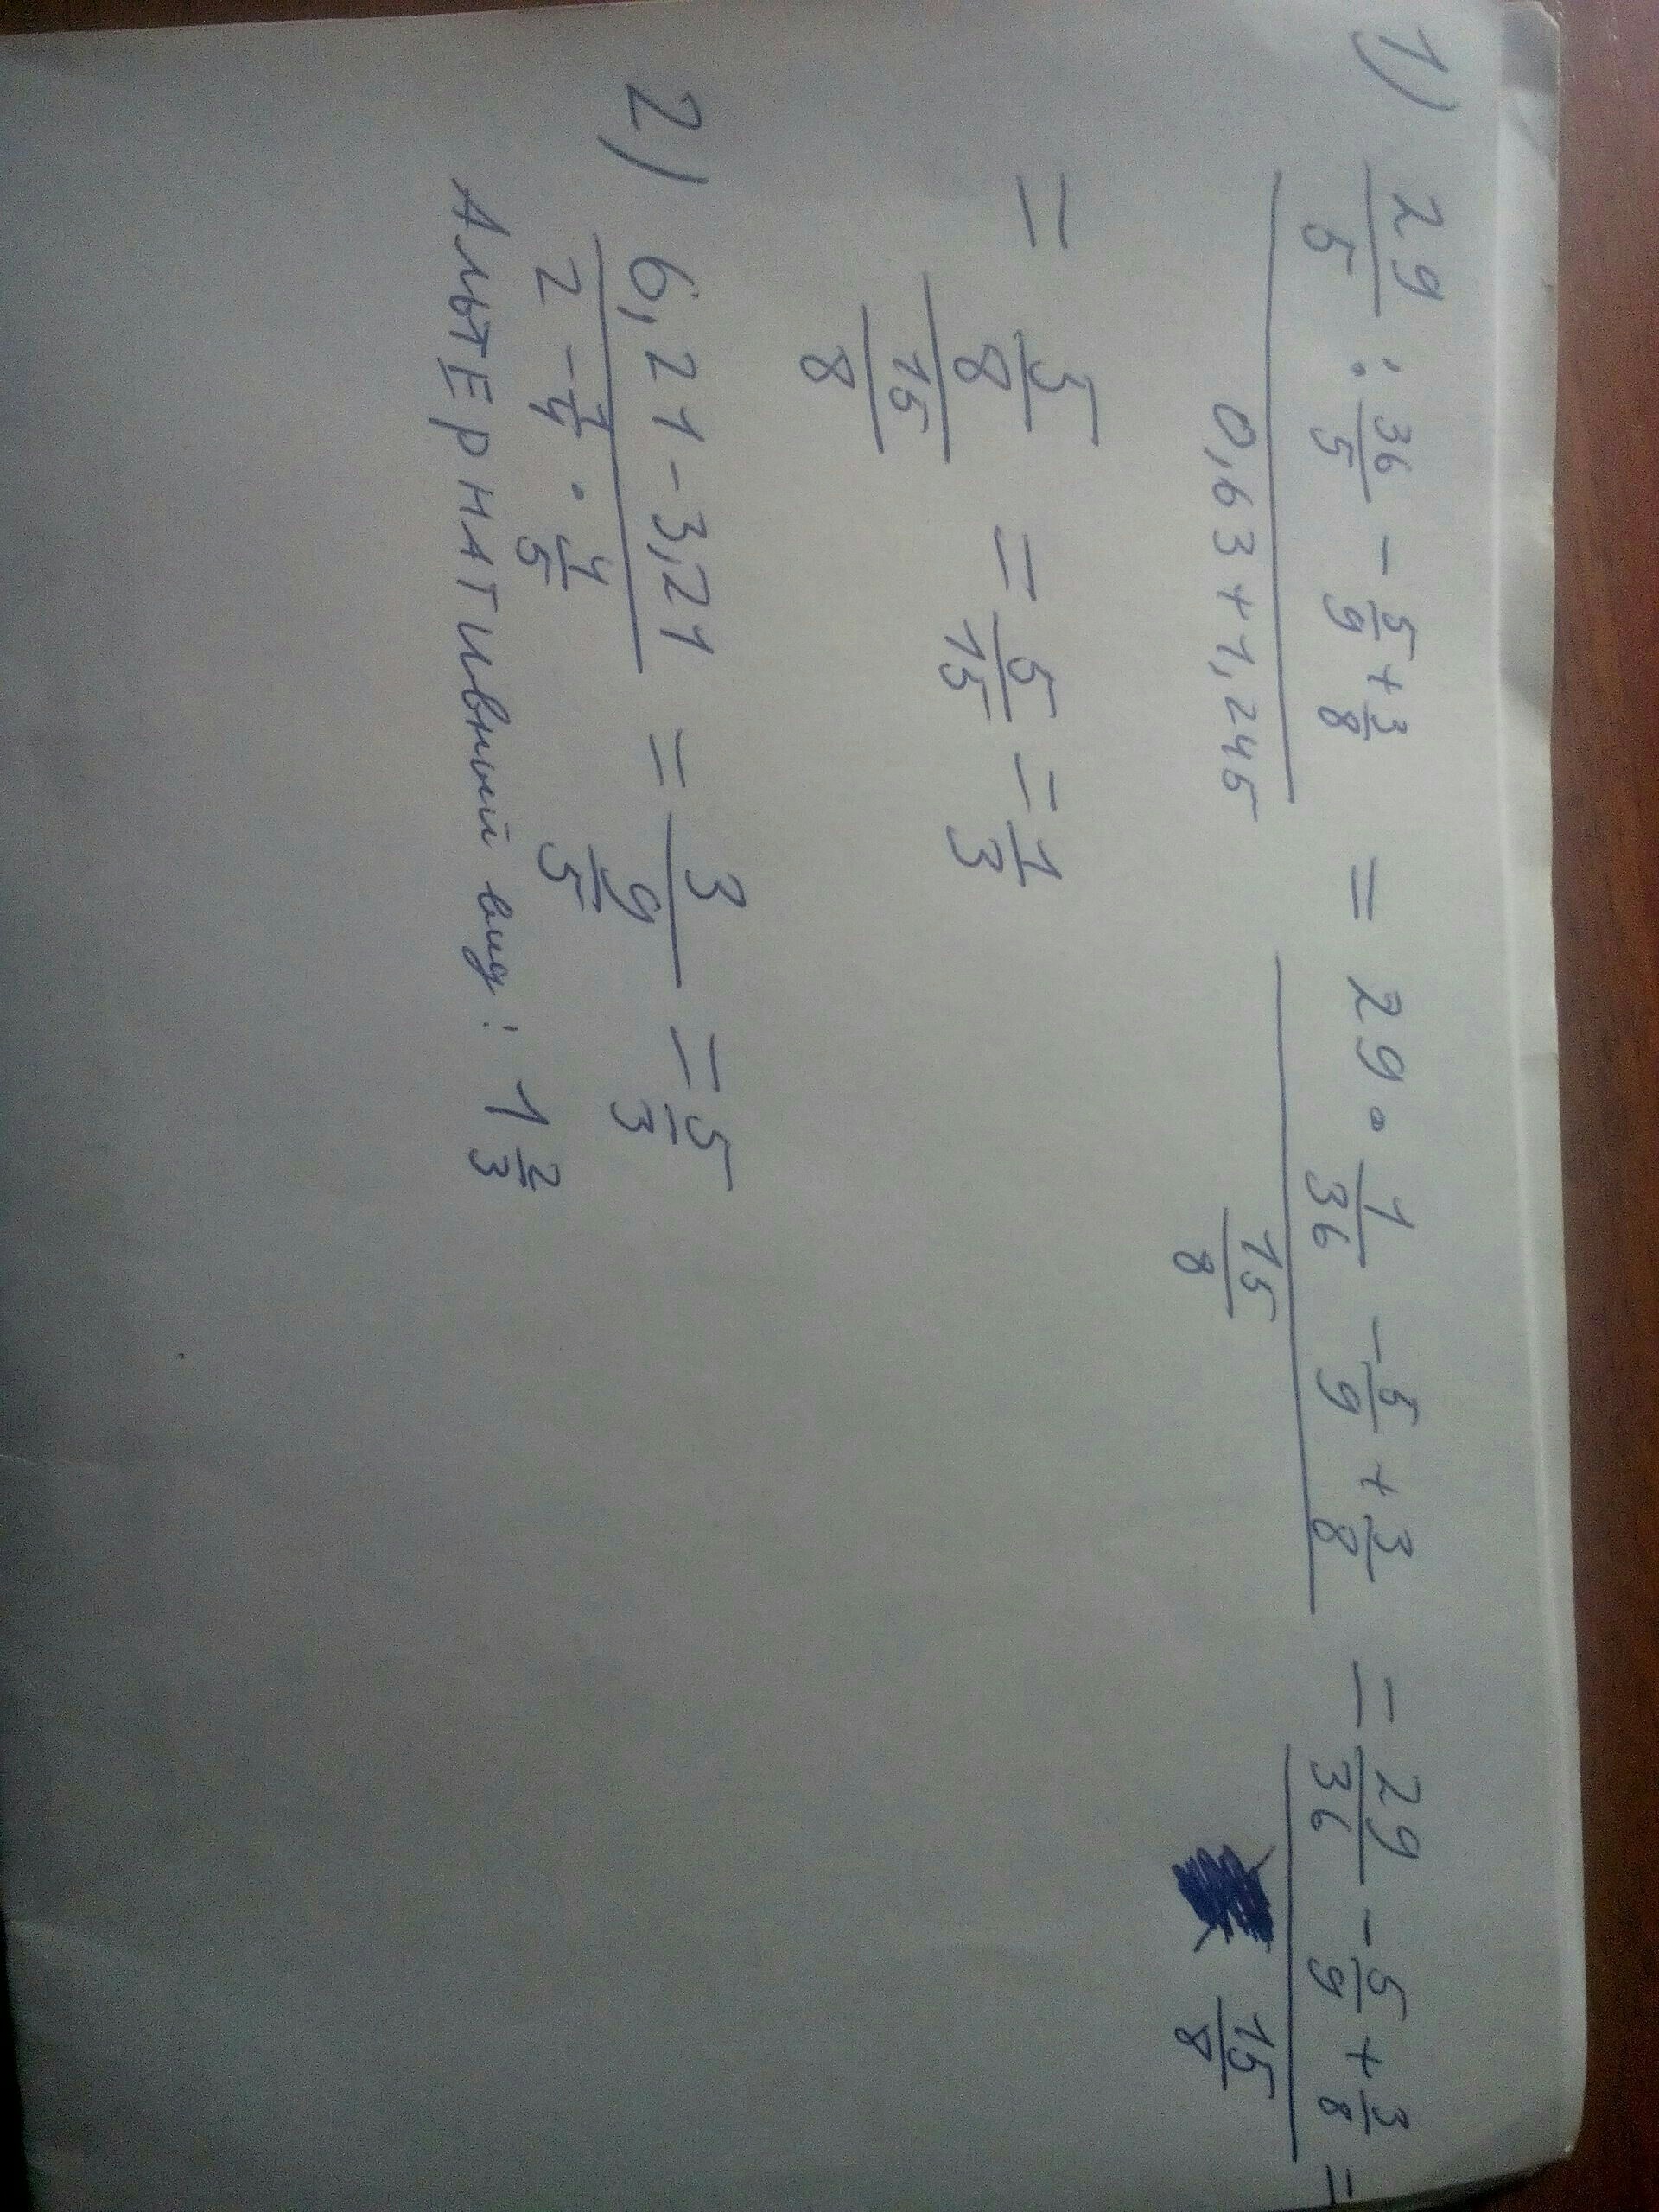 1) 29/5 : 36/5 - 5/9 + 3/8 / 0,63+1,245 = 29 · 1/36 - 5/9 + 3/8 / 15/8 = 29/36 - 5/9 + 3/8 / 15/8 =
= 5/8 / 15/8 = 5/15 = 1/3
2) 6,21-3,21 / 2 - 1/4 · 4/5 = 3 / 9/5 = 5/3
Альтернативный вид: 1 2/3